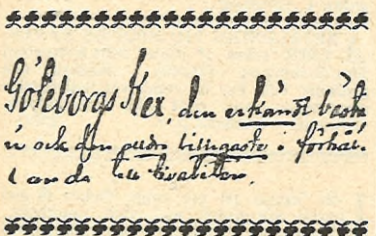 Göteborgs Kex, den erkändt bästa
är ock den billigaste i förhål-
lande till kvaliten.